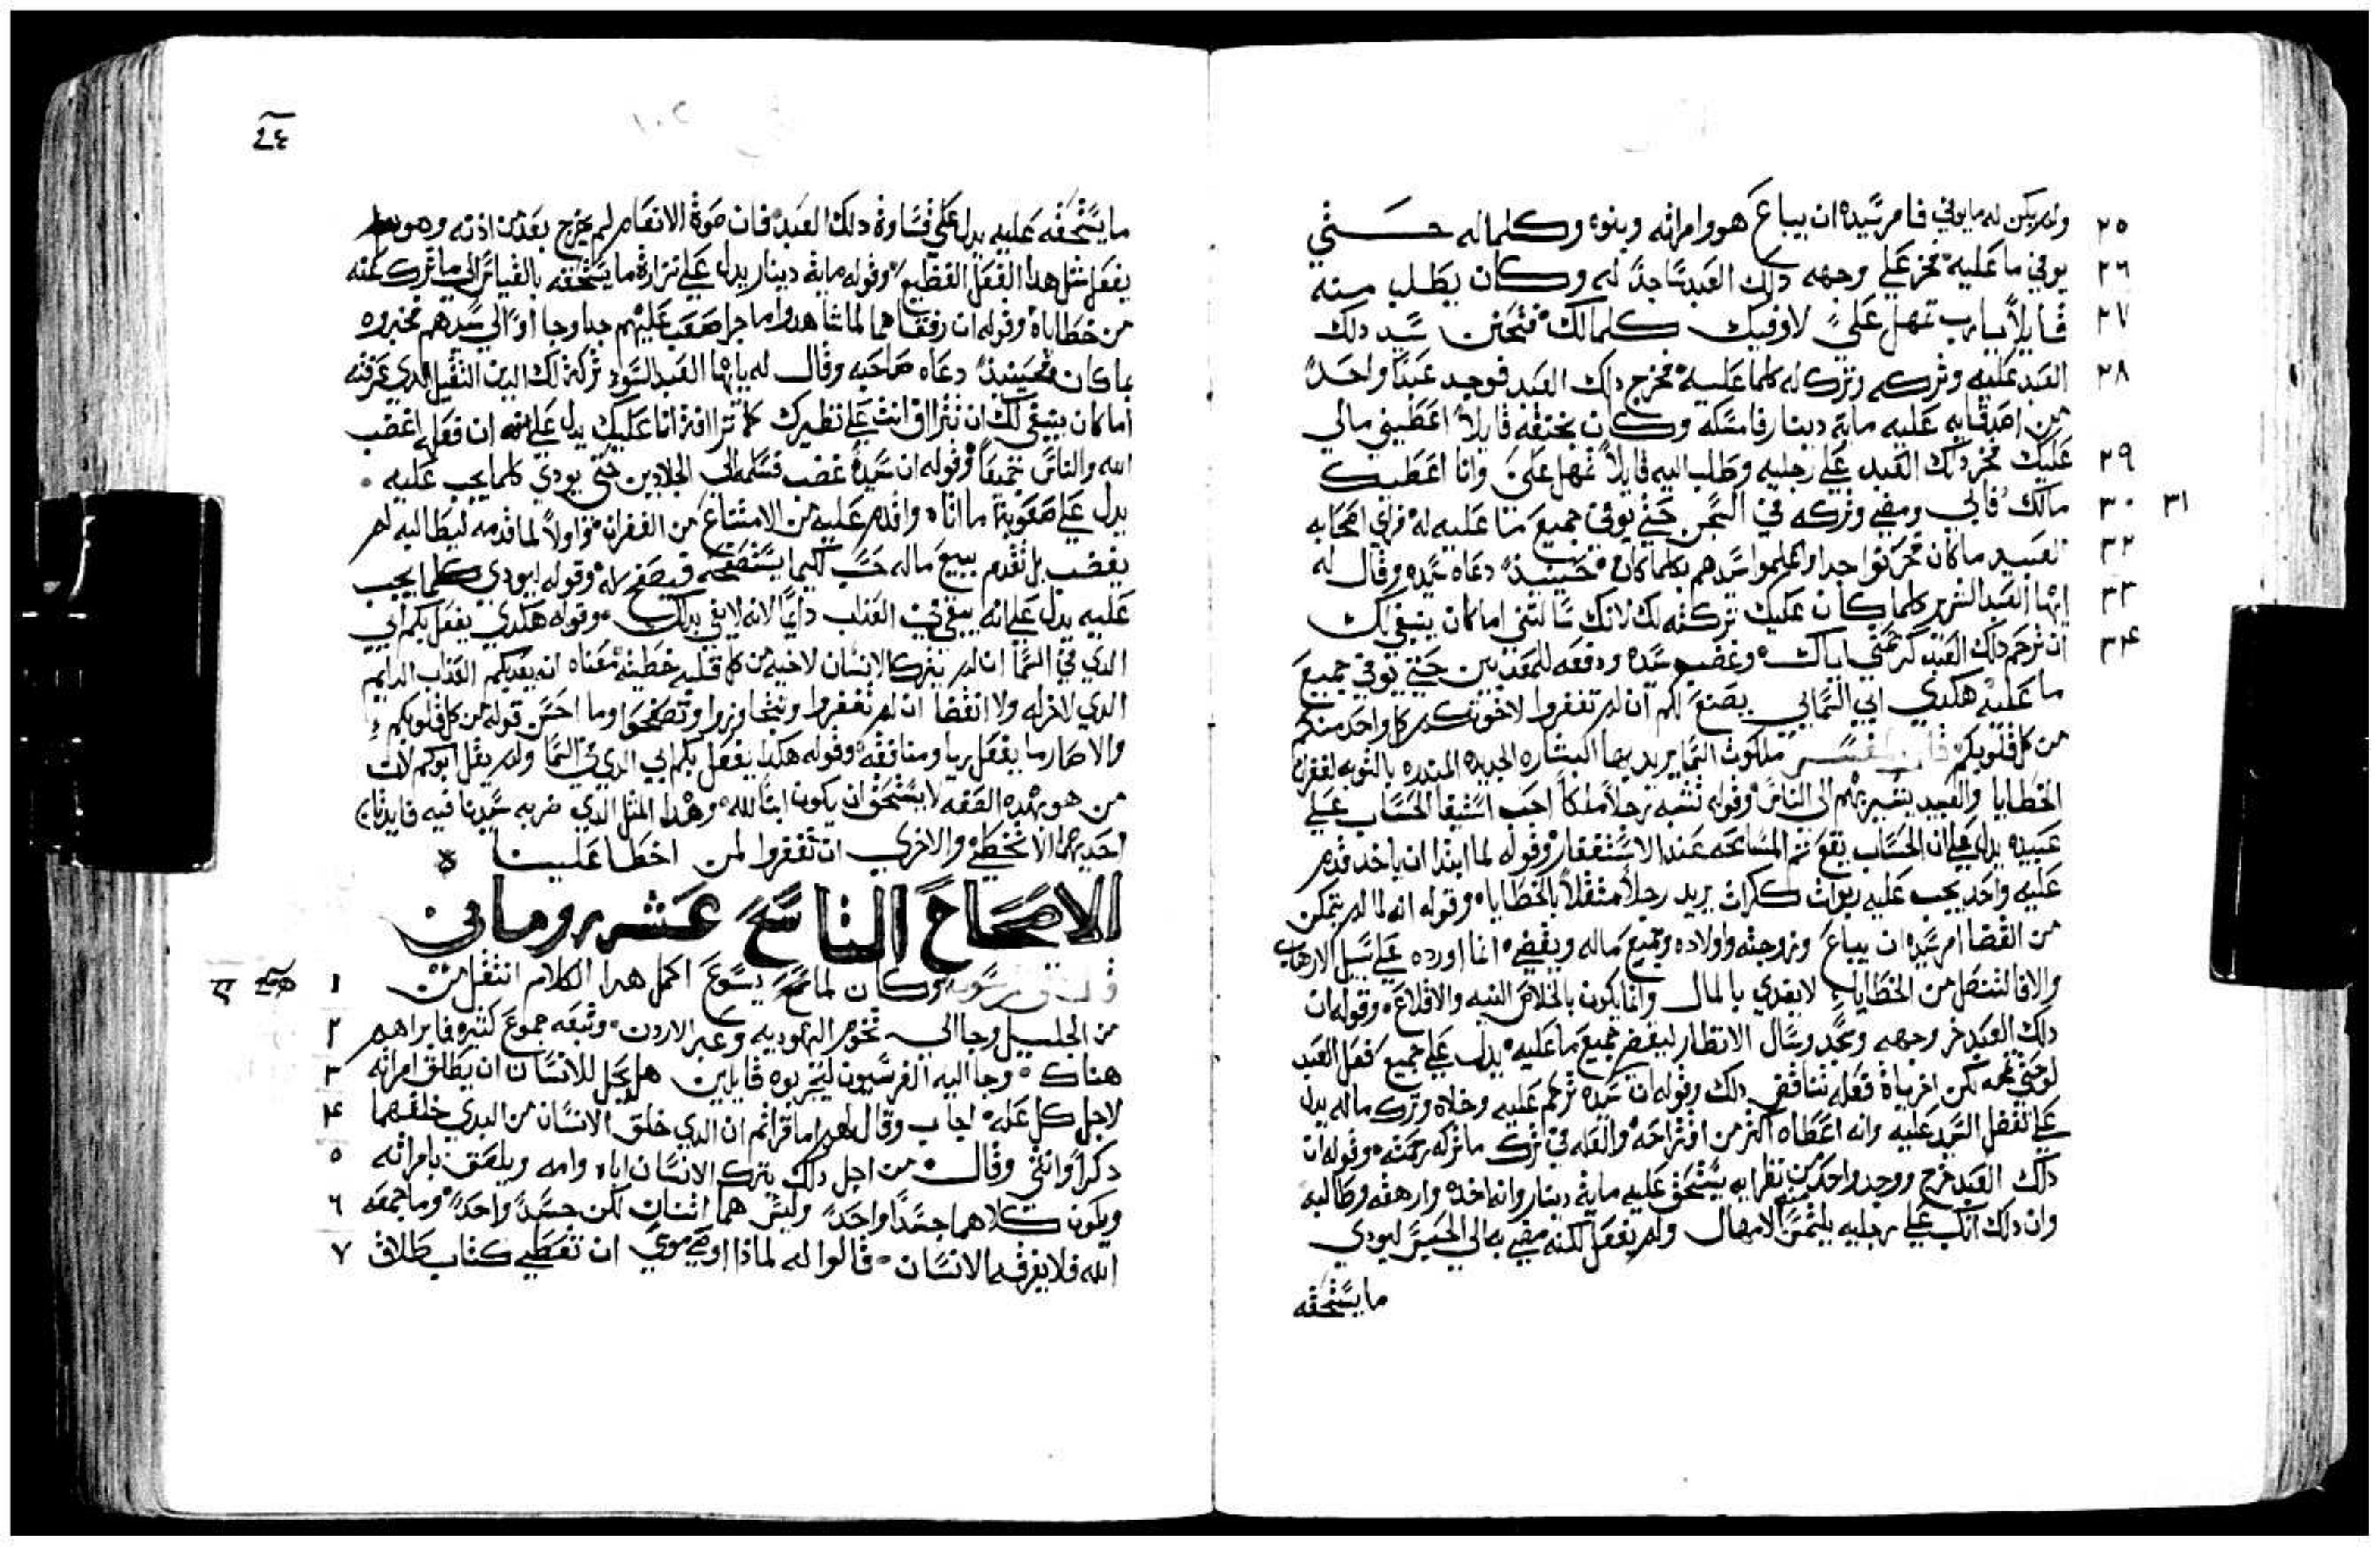 ولم يكن له ما يوفي فامر سيده ان يباع هو وامراته وبنوه وكلما له حتي
٢٥
يوفي ما عليه فخر علي وجهه دلك العبد ساجدا له وكان يطلب منه
٢٦
قايلا يا رب تمهل علي لاوفيك كلما لك فتحنن سيد دلك
٢٧
العبد عليه وتركه وترك له كلما عليه فخرج دلك العبد فوجد عبدا واحدا
٢٨
من اصدقايه عليه ماية دينار فامسكه وكان يخنقه قايلا اعطيني مالي
عليك فخر دلك العبد علي رجليه وطلب اليه قايلا تمهل علي وانا اعطيك
٢٩
مالك فابي ومضي وتركه في السجن حتي يوفي جميع ما عليه له فراي اصحابه
٣٠ ٣١
العبيد ما كان فحزنوا جدا واعلموا سيدهم بكلما كان حينيذ دعاه سيده وقال له
٣٢
ايها العبد الشرير كلما كان عليك تركته لك لانك سالتني اما كان ينبغي لك
٣٣
ان ترحم دلك العبد كرحمتي اياك وغضب سيده ودفعه للمعدبين حتي يوفي جميع
٣٤
ما عليه هكدي ابي السمايي يصنع لكم ان لم تغفروا لاخوتكم كل واحد منكم
من كل قلوبكم ملكوت السما يريد بها البشاره الجديده المندره بالتوبه لغفران
الخطايا والعبيد يشير بهم الي الناس وقوله تشبه رجلا ملكا احب استيفا الحساب علي
عبيده يدل علي ان الحساب يقع ثم المسامحه عند الاستغفار وقوله لما ابتدا ان ياخد قدم
عليه واحد يجب عليه ربوات كرات يريد رجلا مثقلا بالخطايا وقوله انه لما لم يتمكن
من القضا امر سيده ان يباع وزوجته واولاده وجميع ماله ويقضي انما اورده علي سبيل الارهاب
والا فالتنصل من الخطايا لا يفدي بالمال وانما يكون بالخلاص النيه والاقلاع وقوله ان
دلك العبد خر وجهه وسجد وسال الانظار ليقضي جميع ما عليه يدل علي جميع فعل العبد
فعله تناقض دلك وقوله ان سيده ترحم عليه وخلاه وترك ماله يدل
علي تفضل السيد عليه وانه اعطاه اكثر من اقتراحه والعله في ترك ما تركه رحمته وقوله ان
دلك العبد خرج ووجد واحد من نظرايه يستحق عليه ماية دينار وانه اخده وارهقه وطالبه
وان دلك انكب علي رجليه يلتمس منه الامهال ولم يفعل لكنه مضي به الي الحبس ليودي
ما يستحقه
٢٤
ما يستحقه عليه يدل علي قساوة دلك العبد فان صوة الانعام لم يخرج بعد من ادنه وهو
يفعل مثل هدا الفعل الفظيع وقوله ماية دينار يدل علي نزارة ما يستحقه بالقياس الي ما ترك عنه
من خطاياه وقوله ان رفقاهما لما شاهدوا ما جرا صعب عليهم جدا وجااوا الي سيدهم فخبروه
بما كان فحينيذ دعاه صاحبه وقال له يا ايها العبد السوء تركت لك الدين الثقيل الدي عرفته
اما كان ينبغي لك ان تتراااف انت علي نظيرك كما تراافة انا عليك يدل علي انه ان فعله اغضب
الله والناس جميعا وقوله ان سيده غضب فسلمه الي الجلادين حتي يودي كلما يجب عليه
يدل علي صعوبة ما اتاه واقدم عليه من الامتناع من الغفران واولا لما قدمه ليطالبه لم
يغضب بل تقدم ببيع ماله حسب لكيما يستصفحه فيصفح له وقوله ليودي كلما يجب
عليه يدل علي انه يبقي في العداب دايما لانه لا يفي بدلك وقوله هكدي يفعل بكم ابي
الدي في السما ان لم يترك الانسان لاخيه من كل قلبه خطيته معناه انه يعدبكم العداب الدايم
الدي لا اخر له ولا انقضا ان لم تغفروا وتتجاوزوا وتصفحوا وما احسن قوله من كل قلوبكم
والا صار ما يفعل ريا ومنافقه وقوله هكدا يفعل بكم ابي الدي في السما ولم يقل ابوكم لان
من هو بهده الصفه لا يستحق ان يكون ابنا لله وهدا المثل الدي ضربه سيدنا فيه فايدتان
احديهما الا نخطي والاخري ان نغفروا لمن اخطا علينا
الاصحاح التاسع عشر روماني
وكان لما يسوع اكمل هدا الكلام انتقل من
١
من الجليل وجا الي تخوم اليهوديه وعبر الاردن وتبعه جموع كثيره فابراهم
٢
هناك وجا اليه الفرسيون ليجربوه قايلين هل يحل للانسان ان يطلق امراته
٣
لاجل كل عله اجاب وقال لهم اما قراتم ان الدي خلق الانسان من البدي خلقهما
٤
دكرا وانثي وقال من اجل دلك يترك الانسان اباه وامه ويلصق بامراته
٥
ويكون كلاهما جسدا واحدا وليس هما اثنان لكن جسدا واحدا وما جمعه
٦
الله فلا يفرقه الانسان قالوا له لمادا اوصي موسي ان تعطي كتاب طلاق
٧